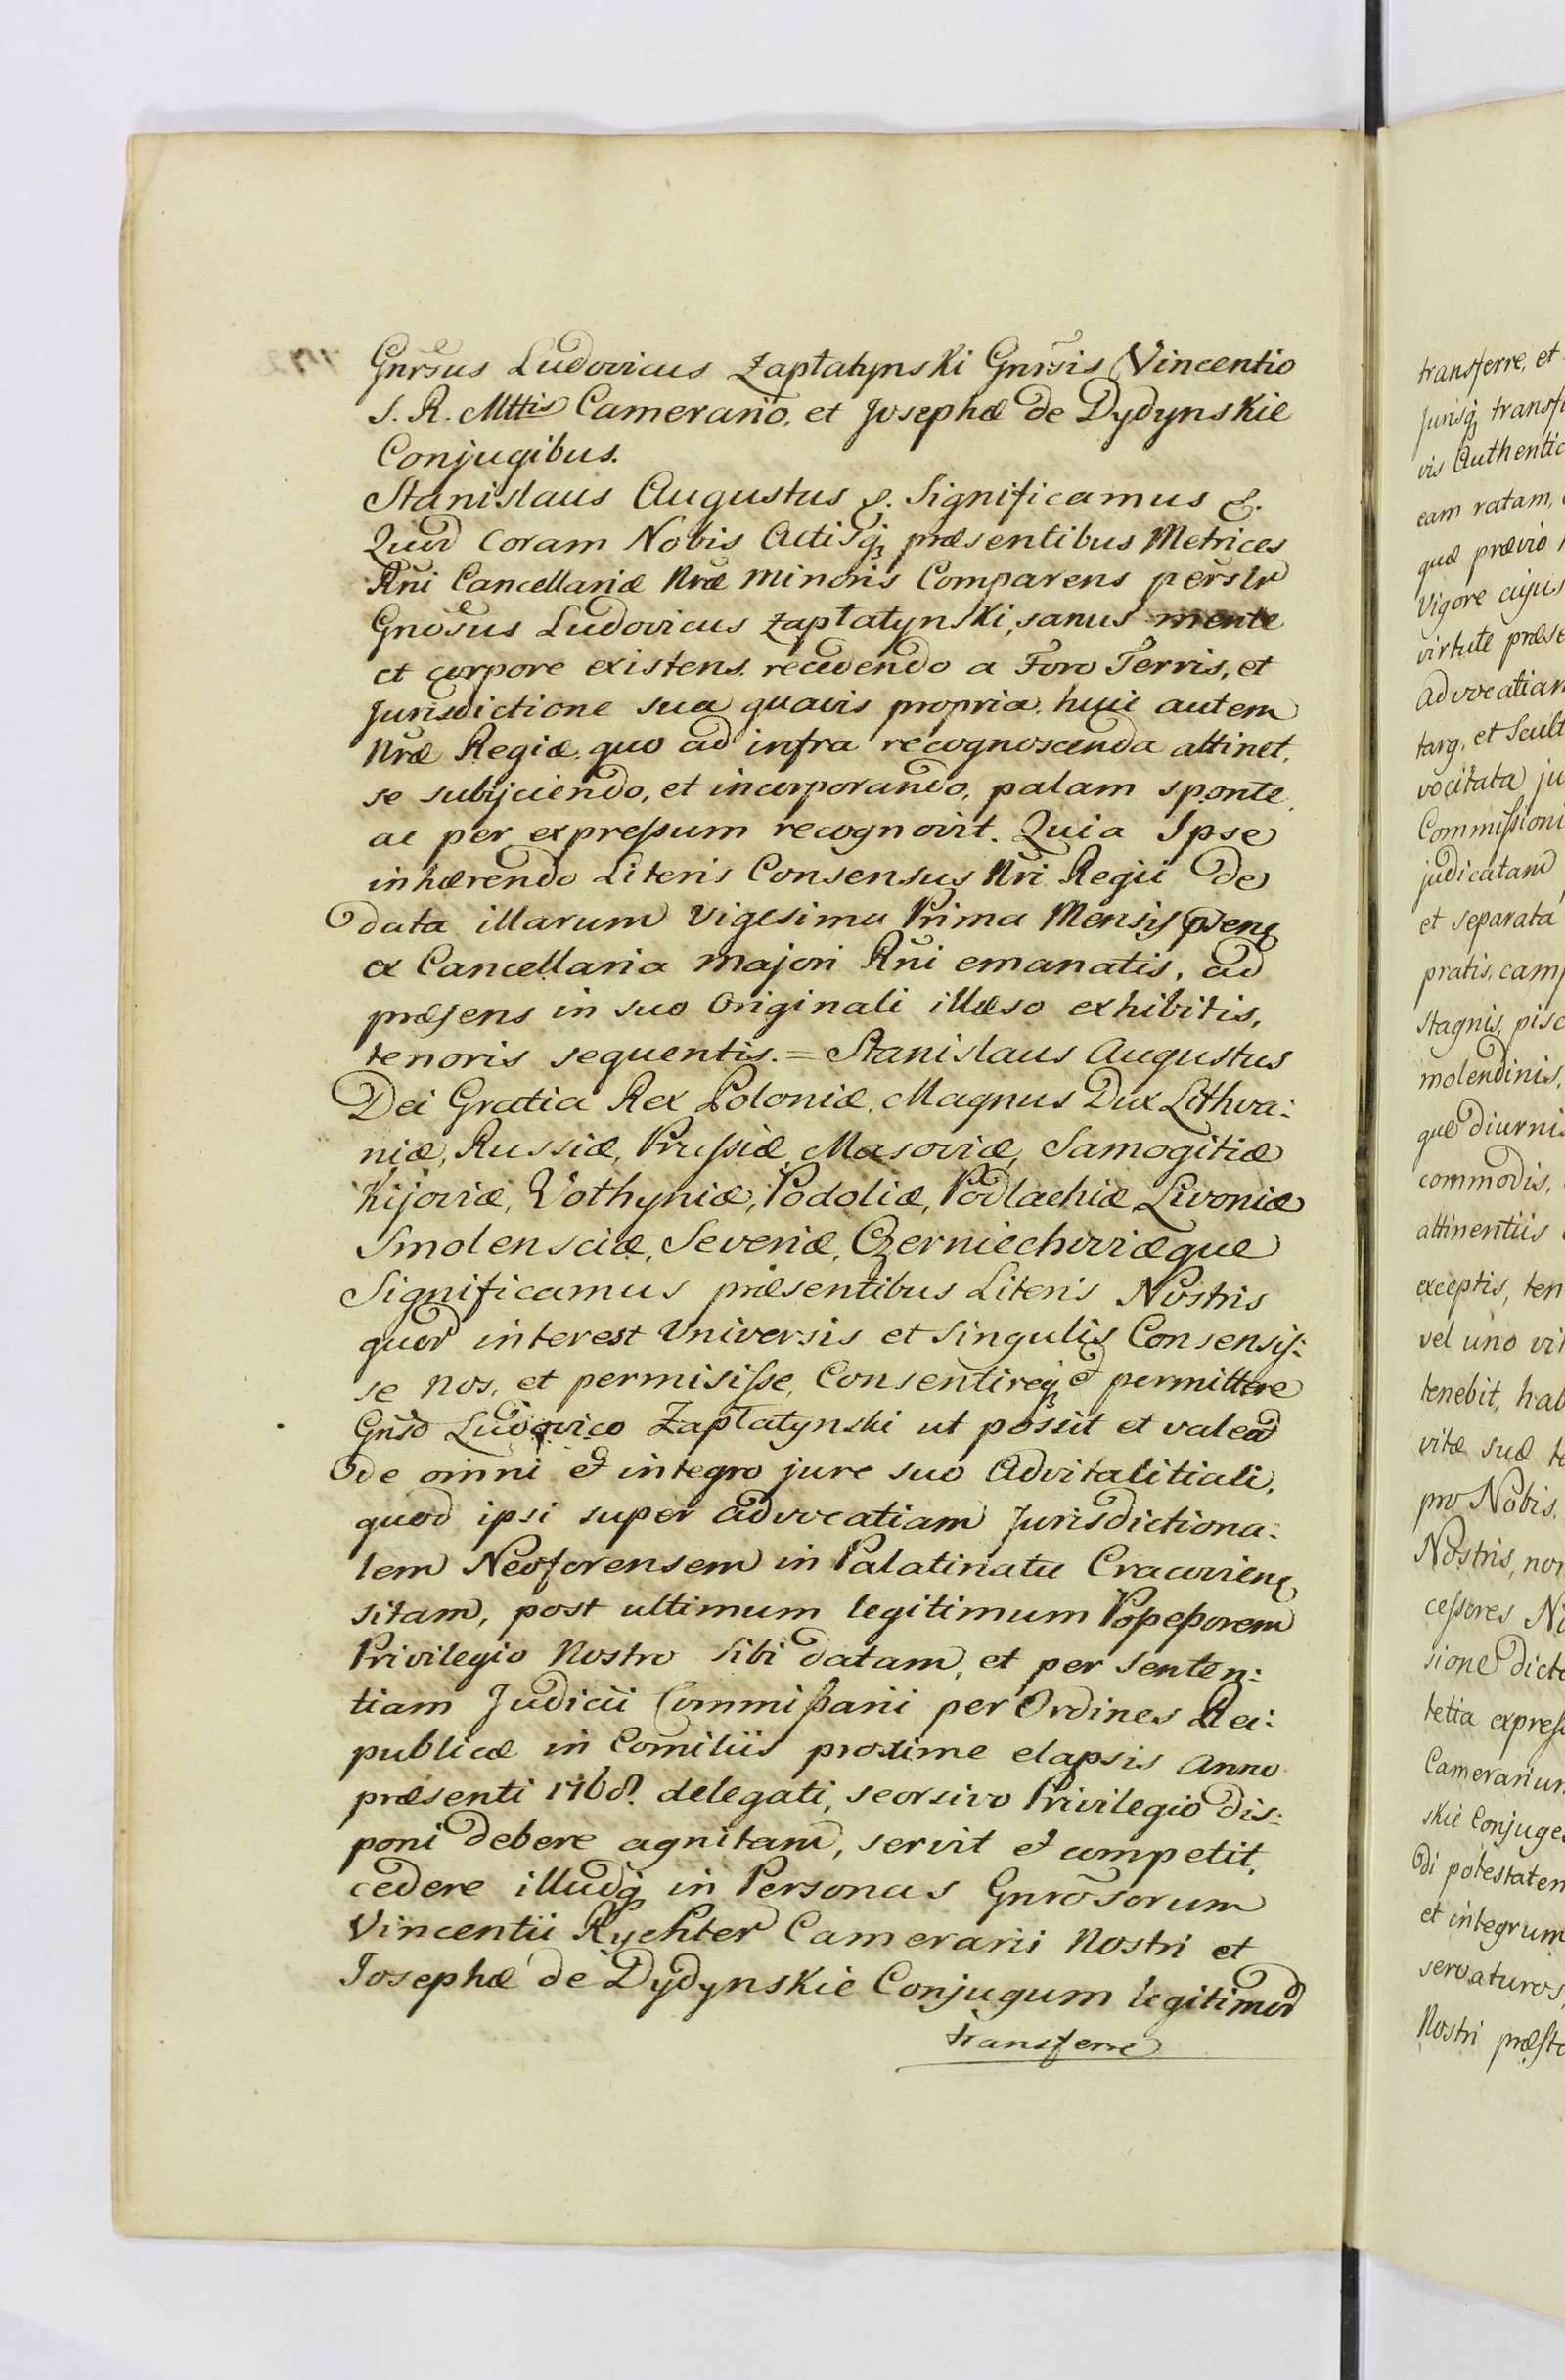 Gnrsus Ludovicus Zapłatynski Gnrsis Vincentio
S. R. Mttis Camerario, et Josephæ de Dydynskie
Conjugibus.
Stanislaus Augustus &. Significamus &.
Quod Coram Nobis Actisq, præsentibus Metrices
Rni Cancellariæ Nræ minoris Comparens perslr
Gnosus Ludovicus Zapłatynski, sanus mente
et corpore existens recedendo a Foro Terris, et
Jurisdictione sua quavis propria, huic autem
Nræ Regiæ, quo ad infra recognoscenda attinet,
se subijciendo, et incorporando, palam sponte,
ac per expressum recognovit. Quia Ipse
inhærendo Literis Consensus Nri Regii de
data illarum Vigesima Prima Mensis præsens
ex Cancellaria majori Rni emanatis, ad
præsens in suo Originali illæso exhibitis,
tenoris sequentis. = Stanislaus Augustus
Dei Gratia Rex Poloniæ, Magnus Dux Lithva:
niæ, Russiæ, Prussiæ, Masoviæ, Samogitiæ
Kijoviæ, Vołhyniæ, Podoliæ, Podlachiæ Livoniæ
Smolensciæ, Severiæ, Czerniechoviæque
Significamus præsentibus Literis Nostris
quod interest Universis et Singulis Consensis:
se nos, et permisisse, Consentireq, et permittere
Gnso Ludovico Zapłatynski ut possit et valead
de omni et integro jure suo Advitalitiali,
quod ipsi super advocatiam Jurisdictiona:
lem Neoforensem in Palatinatu Cracovien
sitam, post ultimum legitimum Possessorem
Privilegio Nostro sibi datam, et per senten:
tiam Judicii Commissarii per Ordines Rei:
publicæ in Comitiis proxime elapsis Anno
præsenti 1768. delegati, seorsivo Privilegio dis:
poni debere agnitam, servit et competit,
cedere illudq, in Personas Gnrosorum
Vincentii Rychter Camerarii Nostri et
Josephæ de Dydynskie Conjugum legitimor
transferre
transferre, et
Jurisq, transf
vis Authentic
eam ratam,
quæ prævio
Vigore cujus
virtute præse
advocatiam
targ, et Scult
vocitata ju
Commissioni
judicatam
et separata
pratis, camp
stagnis, pisc
molendinis,
que diurnis
commodis,
attinentiis
exceptis, ten
vel uno vit
tenebit, hab
vitæ suæ te
pro Nobis,
Nostris, non
cessores No
sione dicta
tetia express
Camerarium
skie Conjuges
di potestatem
et integrum
servaturos,
Nostri præsta